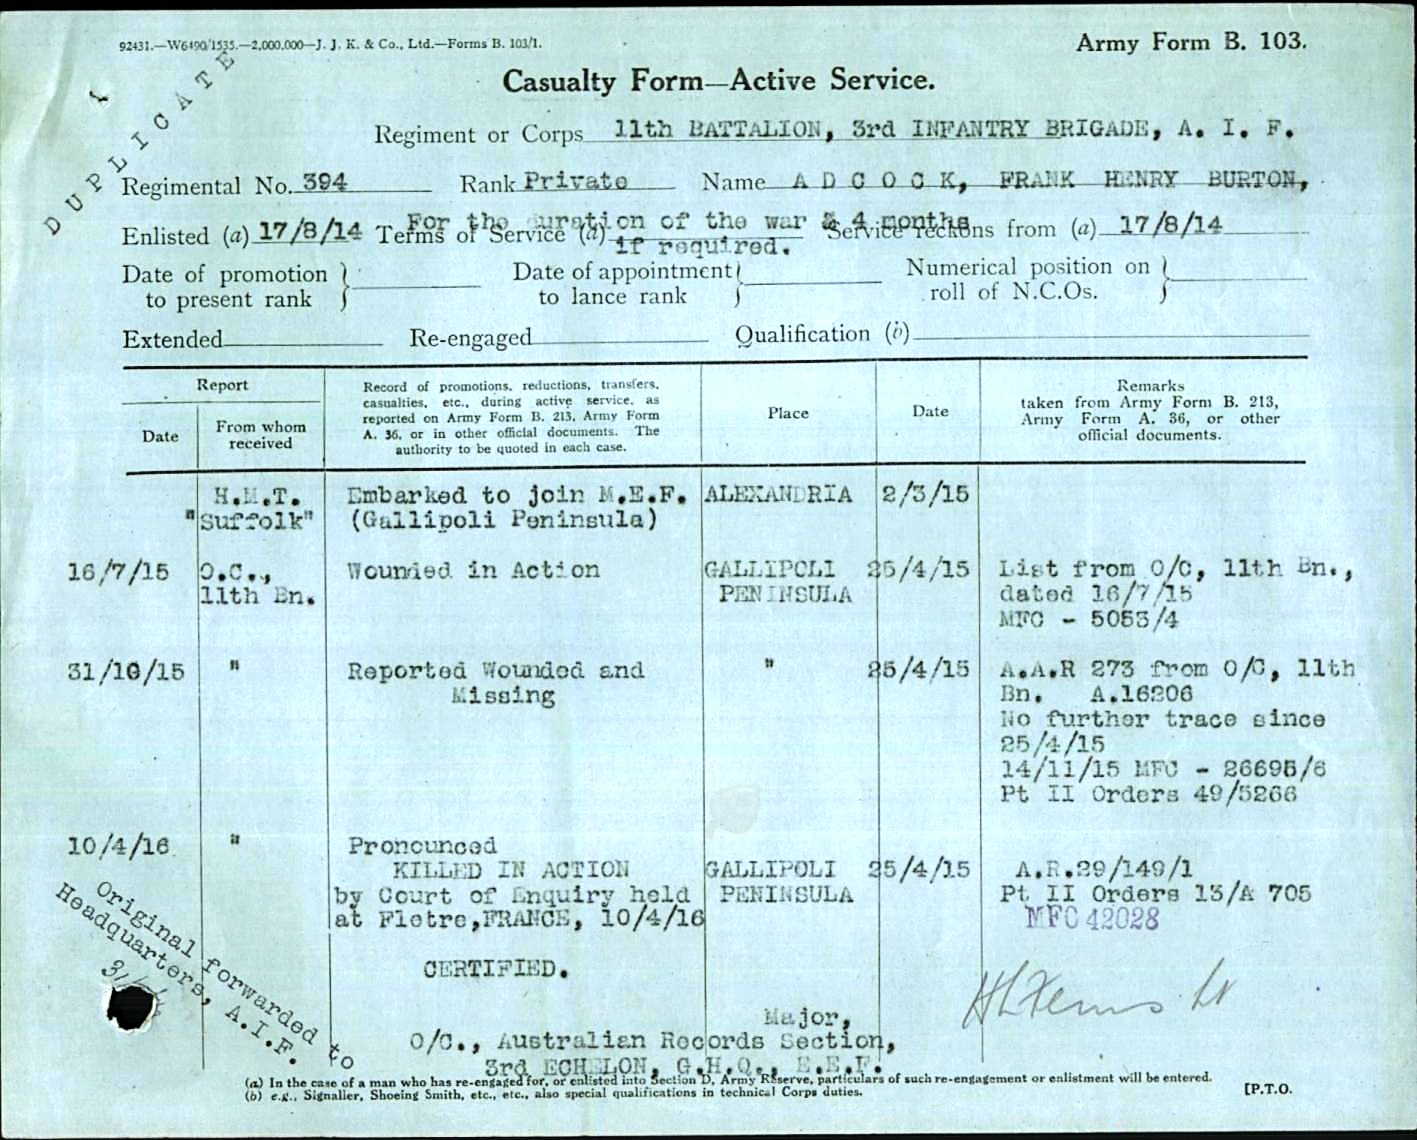 92431.—W6490/1535.—2,000,000—J. J. K. & Co., Ltd.—Forms B. 103/1.
Army Form B. 103.
DUPLICATE
Casualty Form—Active Service.
Regiment or Corps 11th BATTALION, 3rd INFANTRY BRIGADE, A. I. F.
Regimental No. 394 Rank Private Name A D C O C K, FRANK HENRY BURTON,
For the duration of the war & 4 months
Enlisted (a) 17/8/14 Terms of Service (a) if required. Service reckons from (a) 17/8/14
Date of promotion to present rank
Date of appointment to lance rank
Numerical position on roll of N.C.Os.
Extended Re-engaged Qualification (b)
Report
Date
From whom received
Record of promotions, reductions, transfers,
casualties, etc., during active service, as
reported on Army Form B. 213, Army Form
A. 36, or in other official documents. The
authority to be quoted in each case.
Place
Date
Remarks
taken from Army Form B. 213,
Army Form A. 36, or other
official documents.
H.M.T. Embarked to join M.E.F. ALEXANDRIA 2/3/15
"Suffolk" (Gallipoli Peninsula)
16/7/15 O.C., Wounded in Action GALLIPOLI 25/4/15 List from O/C, 11th Bn.,
11th Bn. PENINSULA dated 16/7/15
MFC - 5053/4
31/10/15 " Reported Wounded and " 25/4/15 A.A.R 273 from O/C, 11th
Missing Bn. A.16206
No further trace since
25/4/15
14/11/15 MFC - 26695/6
Pt II Orders 49/5266
10/4/16 " Pronounced
KILLED IN ACTION GALLIPOLI 25/4/15 A.R.29/149/1
by Court of Enquiry held PENINSULA Pt II Orders 13/A 705
at Fletre, FRANCE, 10/4/16 MFC 42028
Original forwarded to
Headquarters, A.I.F.
CERTIFIED.
Major,
O/C., Australian Records Section,
3rd ECHELON, G.H.Q., E.E.F.
(a) In the case of a man who has re-engaged for, or enlisted into Section D, Army Reserve, particulars of such re-engagement or enlistment will be entered.
(b) e.g., Signaller, Shoeing Smith, etc., etc., also special qualifications in technical Corps duties.
[P.T.O.